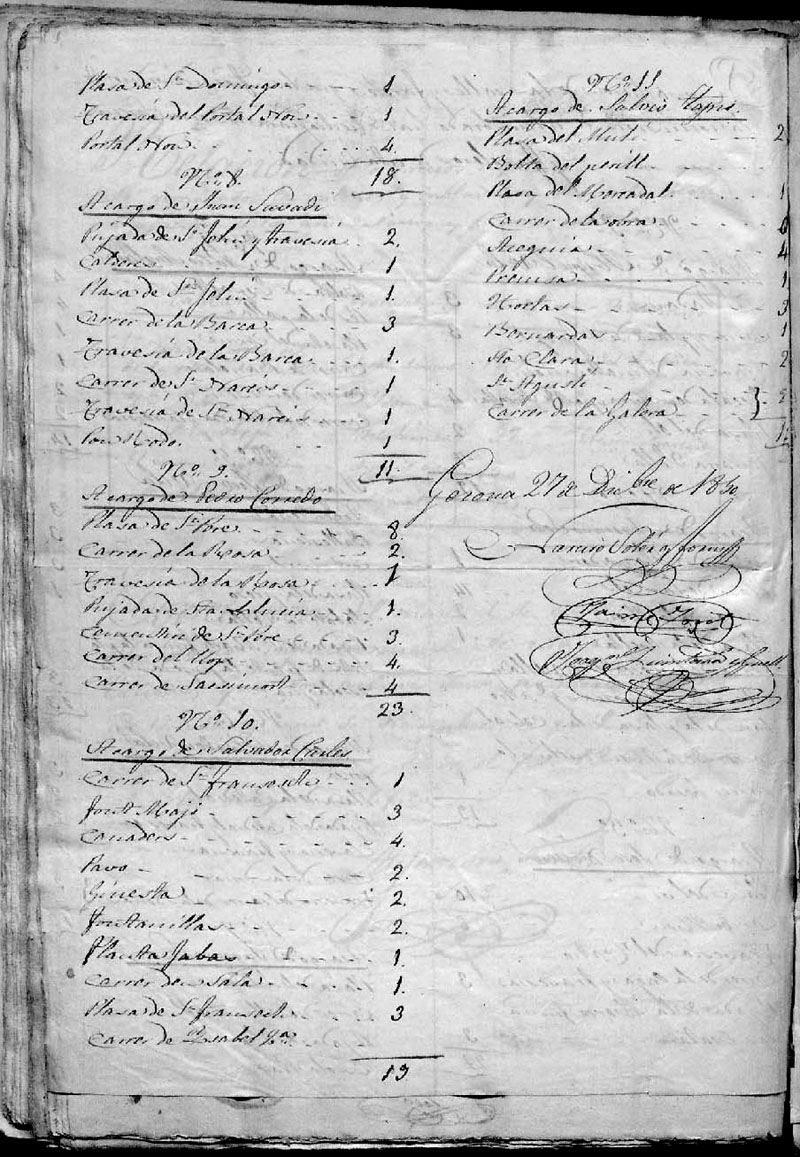 Plasa de Sn. Domingo 1
Travesía del Portal Nou 1
Portal Nou 4.
18.
No. 8.
A cargo de Juan Savadi
Pujada de Sn. Feliu y travesia 2.
Calderes 1
Plasa de Sn. Feliu 1.
Carrer de la Barca 3
Travesía de la Barca 1.
Carrer de Sn. Narcis 1
Travesía de Sn. Narcis 1
Pou Rodo. 1
11.
No. 9.
A cargo de Pedro
Plasa de Sn. Pere 8
Carrer de la Rosa 2.
Travesía de la Rosa 1
Pujada de Sta. Llucia 1.
de Sn. Pere 3.
Carrer del Llop 4.
Carrer de Sacsimort 4
23
No. 10.
A cargo de Salvador Carles
Carrer de Sn. Fransesch 1
Font Majo 3
Canaders 4.
Pavo 2.
Ginesta 2.
Fontanillas 2.
Planta Jabas 1.
Carrer den Sala 1.
Plasa de Sn. Fransech 3
Carrer de Isabel 2a.
13
No. 11
A cargo de Salvio Tapis.
Plasa del Molí 2
Bolta del perill
Plasa del Mercadal 1
Carrer de la obra 6
Acequia 4
Premsa 1
Hortas 3
Bernardas 1
Sta. Clara 2
Sn. Agustí
Carrer de la Galera
Gerona 27 de Dicbre de 1850
Narciso
Jaime
Joaqn.